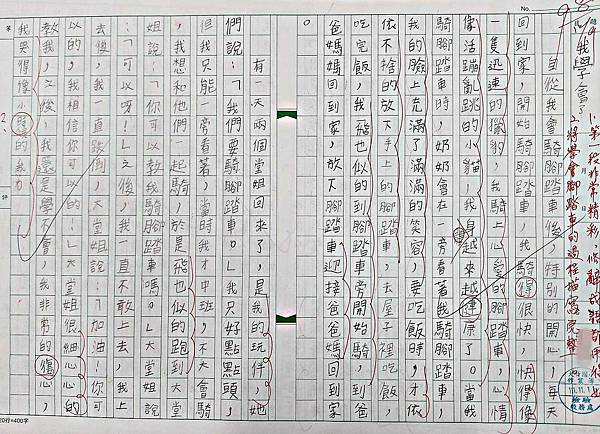 我學會了
1.第一段非常精彩,修辭
2.將學會腳踏車的過程描寫完整
自從我會騎腳踏車後,特別的開心,每天
回到家 騎得很快,快得像
一隻迅速的獵豹,我騎上心愛的腳踏車,心情
像活蹦亂跳的小貓,我身越來越健康了。當我
騎腳踏車時,奶奶會在一旁看著我騎腳踏車,
我的臉上充滿了滿滿的笑容,要吃飯時,才依
依不捨的放下手 腳踏車 子裡吃飯,
吃完飯,我飛也似的到旁開始騎
爸媽媽回到家,放下腳踏車,迎接爸爸媽媽回到家
。
有一天兩個堂姐回來了,是我的玩伴,她
們說:「我們要騎腳踏車。」我只好點點頭,
但我只能一旁看著,當時我才中班,不大會騎
,我想和他們一起騎,於是飛也似的跑到大堂
姐說:「你可以教我騎腳踏車嗎?」大堂姐
:「可以呀!」之後我一直不敢上去,我上
去後,一直跌倒,大堂姐說:「加油!你可
以的,相信你可以的!」大堂姐很細心的
教我,之後我還是學不會,我非常的傷心,
我哭得像小
20行=400字